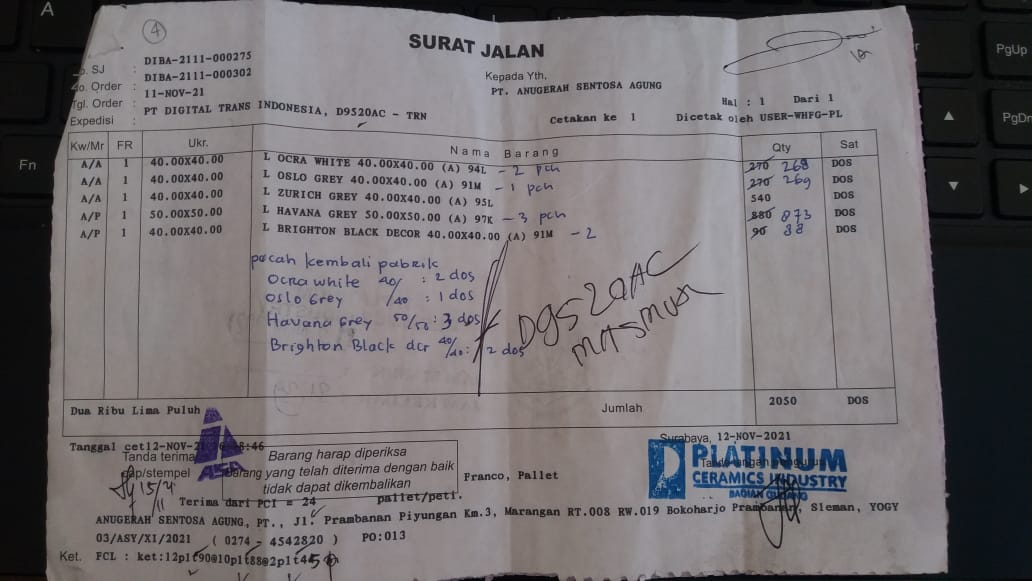 4
SURAT JALAN
No. SJ : DIBA-2111-000275
No. Order : DIBA-2111-000302
Tgl. Order : 11-NOV-21
Expedisi : PT DIGITAL TRANS INDONESIA, D9520AC - TRN
Kepada Yth,
PT. ANUGERAH SENTOSA AGUNG
Hal : 1 Dari 1
Cetakan ke 1 Dicetak oleh USER-WHFG-PL
Kw/Mr FR Ukr. Nama Barang Qty Sat
A/A 1 40.00X40.00 L OCRA WHITE 40.00X40.00 (A) 94L - 2 pch 270 268 DOS
A/A 1 40.00X40.00 L OSLO GREY 40.00X40.00 (A) 91M - 1 pch 270 269 DOS
A/A 1 40.00X40.00 L ZURICH GREY 40.00X40.00 (A) 95L 540 DOS
A/P 1 50.00X50.00 L HAVANA GREY 50.00X50.00 (A) 97K - 3 pch 880 873 DOS
A/P 1 40.00X40.00 L BRIGHTON BLACK DECOR 40.00X40.00 (A) 91M - 2 90 88 DOS
pecah kembali pabrik
Ocra white 40/ : 2 dos
Oslo Grey /40 : 1 dos
Havana Grey 50/50 : 3 dos
Brighton Black dcr 40/40 : 2 dos
D9520AC
MASMUR
Dua Ribu Lima Puluh Jumlah 2050 DOS
Tanggal cet12-NOV-21 :46
Tanda terima
cap/stempel
ASA
15/4/11
Barang harap diperiksa
Barang yang telah diterima dengan baik
tidak dapat dikembalikan
Franco, Pallet
Surabaya, 12-NOV-2021
PLATINUM
CERAMICS INDUSTRY
BAGIAN GUDANG
Terima dari PCI = 24 pallet/peti.
ANUGERAH SENTOSA AGUNG, PT., Jl. Prambanan Piyungan Km.3, Marangan RT.008 RW.019 Bokoharjo Prambanan, Sleman, YOGY
03/ASY/X1/2021 ( 0274 - 4542820 ) PO:013
Ket. FCL : ket:12plt90@10plt88@2plt45